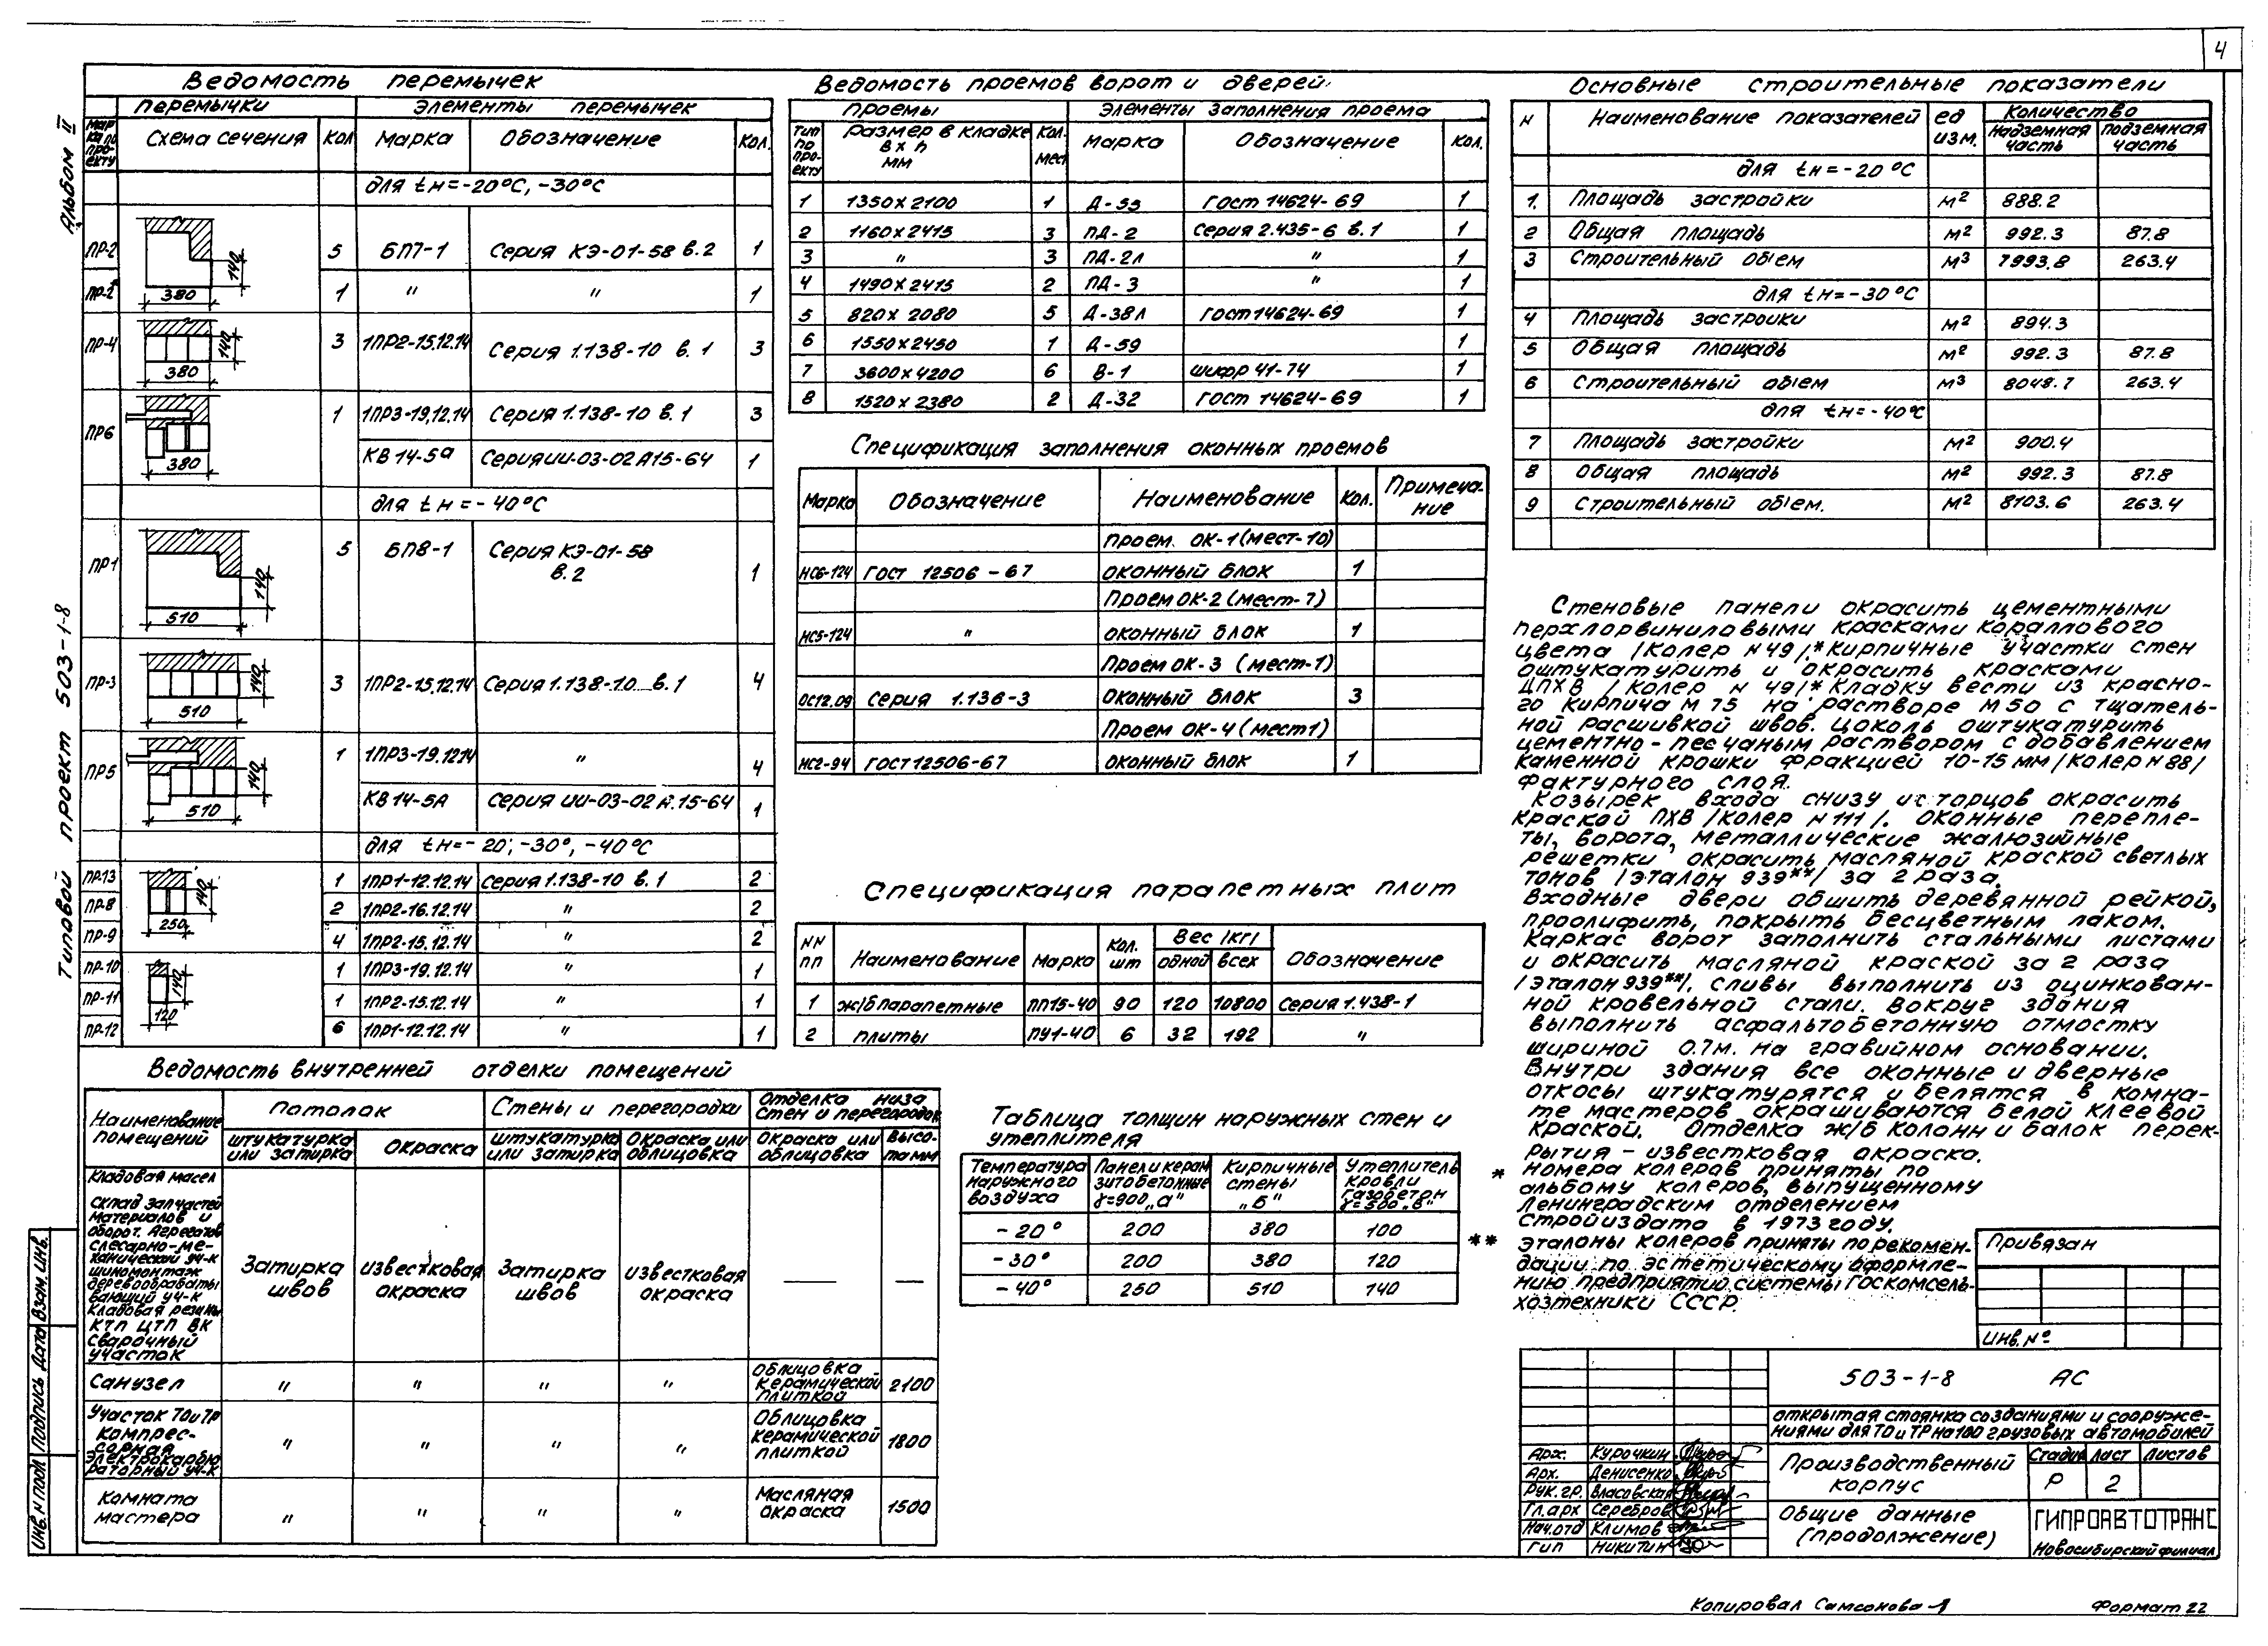 4
Альбом II
Типовой проект 503-1-8
Ведомость перемычек
перемычки Элементы перемычек
Марка по проекту Схема сечения Кол Марка Обозначение Кол.
для tн=-20°С, -30°С
ПР-2 380 140 5 БП7-1 Серия КЭ-01-58 в.2 1
ПР-2* 1 " " 1
ПР-4 380 140 3 1ПР2-15.12.14 Серия 1.138-10 в.1 3
ПР6 380 1 1ПР3-19,12.14 Серия 1.138-10 в.1 3
КВ 14-5а Серия ИИ-03-02 А15-64 1
для tн=-40°С
ПР1 510 140 5 БП8-1 Серия КЭ-01-58 в.2 1
ПР-3 510 140 3 1ПР2-15.12.14 Серия 1.138-10 в.1 4
ПР5 510 140 1 1ПР3-19.12.14 " 4
КВ 14-5А Серия ИИ-03-02 А.15-64 1
для tн=-20°, -30°, -40°С
ПР-13 250 140 1 1ПР1-12.12.14 Серия 1.138-10 в.1 2
ПР-8 2 1ПР2-16.12.14 " 2
ПР-9 4 1ПР2-15.12.14 " 2
ПР-10 120 140 1 1ПР3-19.12.14 " 1
ПР-11 1 1ПР2-15.12.14 " 1
ПР-12 6 1ПР1-12.12.14 " 1
Ведомость проемов ворот и дверей
проемы Элементы заполнения проема
Тип по проекту Размер в кладке в х h мм Кол. мест Марка Обозначение Кол.
1 1350 х 2100 1 Д-55 ГОСТ 14624-69 1
2 1160 х 2415 3 ПД-2 Серия 2.435-6 в.1 1
3 " 3 ПД-2л " 1
4 1490 х 2415 2 ПД-3 " 1
5 820 х 2080 5 Д-38л ГОСТ 14624-69 1
6 1550 х 2450 1 Д-59 1
7 3600 х 4200 6 В-1 шифр 41-74 1
8 1520 х 2380 2 Д-32 ГОСТ 14624-69 1
Спецификация заполнения оконных проемов
Марка Обозначение Наименование Кол. Примечание
Проем ОК-1 (мест-10)
НС6-124 ГОСТ 12506-67 оконный блок 1
Проем ОК-2 (мест-7)
НС5-124 " оконный блок 1
Проем ОК-3 (мест-1)
ОС12.09 Серия 1.136-3 оконный блок 3
Проем ОК-4 (мест1)
НС2-94 ГОСТ 12506-67 оконный блок 1
Спецификация парапетных плит
NN пп Наименование Марка Кол. шт Вес /кг/ одной всех Обозначение
1 ж/б парапетные ПП15-40 90 120 10800 Серия 1.438-1
2 плиты ПУ1-40 6 32 192 "
Основные строительные показатели
N Наименование показателей ед изм. Количество
Надземная часть подземная часть
для tн=-20°С
1. Площадь застройки м² 888.2
2 Общая площадь м² 992.3 87.8
3 Строительный объем м³ 7993.8 263.4
для tн=-30°С
4 Площадь застройки м² 894.3
5 Общая площадь м² 992.3 87.8
6 Строительный объем м³ 8048.7 263.4
для tн=-40°С
7 Площадь застройки м² 900.4
8 Общая площадь м² 992.3 87.8
9 Строительный объем. м² 8103.6 263.4
Стеновые панели окрасить цементными
перхлорвиниловыми красками кораллового
цвета /колер н 49/,* Кирпичные участки стен
оштукатурить и окрасить красками
ЦПХВ /колер н 49/* Кладку вести из красно-
го кирпича М 75 на растворе М 50 с тщатель-
ной расшивкой швов. Цоколь оштукатурить
цементно-песчаным раствором с добавлением
каменной крошки фракцией 10-15 мм /колер н 88/
фактурного слоя.
Козырек входа снизу и с торцов окрасить
краской ПХВ /колер н 111/. Оконные перепле-
ты, ворота, металлические жалюзийные
решетки окрасить масляной краской светлых
тонов /эталон 939**/ за 2 раза.
Входные двери обшить деревянной рейкой,
проолифить, покрыть бесцветным лаком.
Каркас ворот заполнить стальными листами
и окрасить масляной краской за 2 раза
/эталон 939**/. Сливы выполнить из оцинкован-
ной кровельной стали. Вокруг здания
выполнить асфальтобетонную отмостку
шириной 0.7м. на гравийном основании.
Внутри здания все оконные и дверные
откосы штукатурятся и белятся в комна-
те мастеров окрашиваются белой клеевой
краской. Отделка ж/б колонн и балок перек-
рытия - известковая окраска.
* Номера колеров приняты по
альбому колеров, выпущенному
Ленинградским отделением
Стройиздата в 1973 году.
** Эталоны колеров приняты по рекомен-
дации по эстетическому оформле-
нию предприятий системы Госкомсель-
хозтехники СССР.
Ведомость внутренней отделки помещений
Наименование помещений Потолок Стены и перегородки Отделка низа стен и перегородок
штукатурка или затирка окраска штукатурка или затирка Окраска или облицовка Окраска или облицовка Высота мм
Кладовая масел
склад запчастей
материалов и
оборот. агрегатов
слесарно-ме-
ханический уч-к
шиномонтаж
деревообрабаты
вающий уч-к
Кладовая резины
КТП ЦТП ВК
Сварочный
участок
Затирка швов известковая окраска Затирка швов известковая окраска — —
Санузел " " " " Облицовка керамической плиткой 2100
Участок ТО и ТР
Компрес-
сорная
Электрокарбю
раторный уч-к
" " " " Облицовка керамической плиткой 1800
Комната мастера " " " " Масляная окраска 1500
Таблица толщин наружных стен и
утеплителя
Температура наружного воздуха Панели керамзитобетонные γ=900 „а" Кирпичные стены „Б" Утеплитель кровли газобетон γ=500 „в"
-20° 200 380 100
-30° 200 380 120
-40° 250 510 140
Привязан
Инв. N°
503-1-8 АС
открытая стоянка со зданиями и сооруже-
ниями для ТО и ТР на 100 грузовых автомобилей
Арх. Курочкин
Арх. Денисенко
Рук. гр. Власовская
Гл. арх Серебров
Нач. отд Климов
Гип Никитин
Производственный корпус
Стадия Лист Листов
Р 2
Общие данные
(продолжение)
ГИПРОАВТОТРАНС
Новосибирский филиал
Инв. N подл Подпись Дата Взам. инв.
Копировал Самсонова
Формат 22